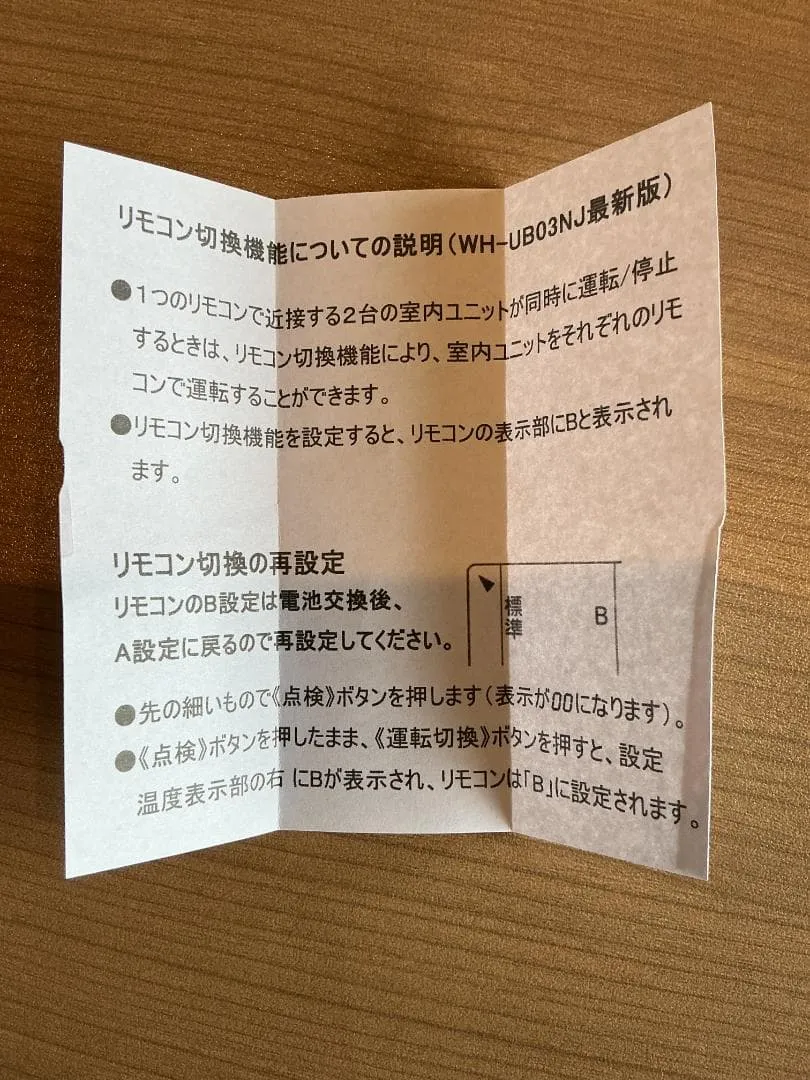 リモコン切換機能についての説明(WH-UB03NJ最新版)
●1つのリモコンで近接する2台の室内ユニットが同時に運転/停止
するときは、リモコン切換機能により、室内ユニットをそれぞれのリモ
コンで運転することができます。
●リモコン切換機能を設定すると、リモコンの表示部にBと表示され
ます。
リモコン切換の再設定
リモコンのB設定は電池交換後、
A設定に戻るので再設定してください。
標準
B
●先の細いもので《点検》ボタンを押します(表示が00になります)。
●《点検》ボタンを押したまま、《運転切換》ボタンを押すと、設定
温度表示部の右 にBが表示され、リモコンは「B」に設定されます。